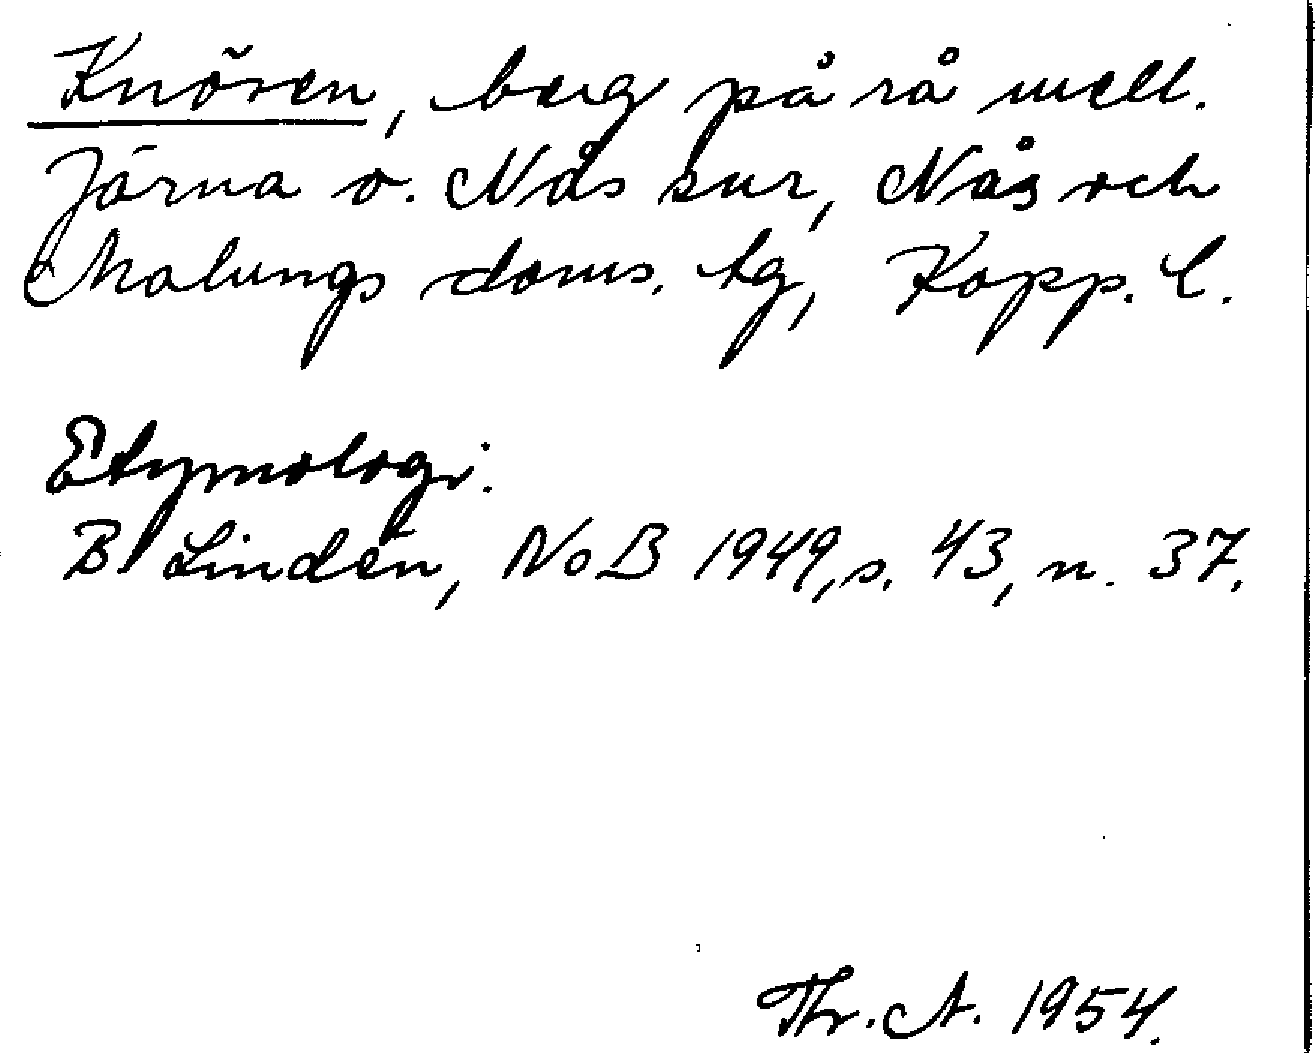 Knösen, berg på rå mell.
Järna o. Nås snr, Nås och
Malungs doms. tg, Kopp. l.
Etymologi:
B Lindén, NoB 1949, s. 43, n. 37.
Thr. A. 1954.